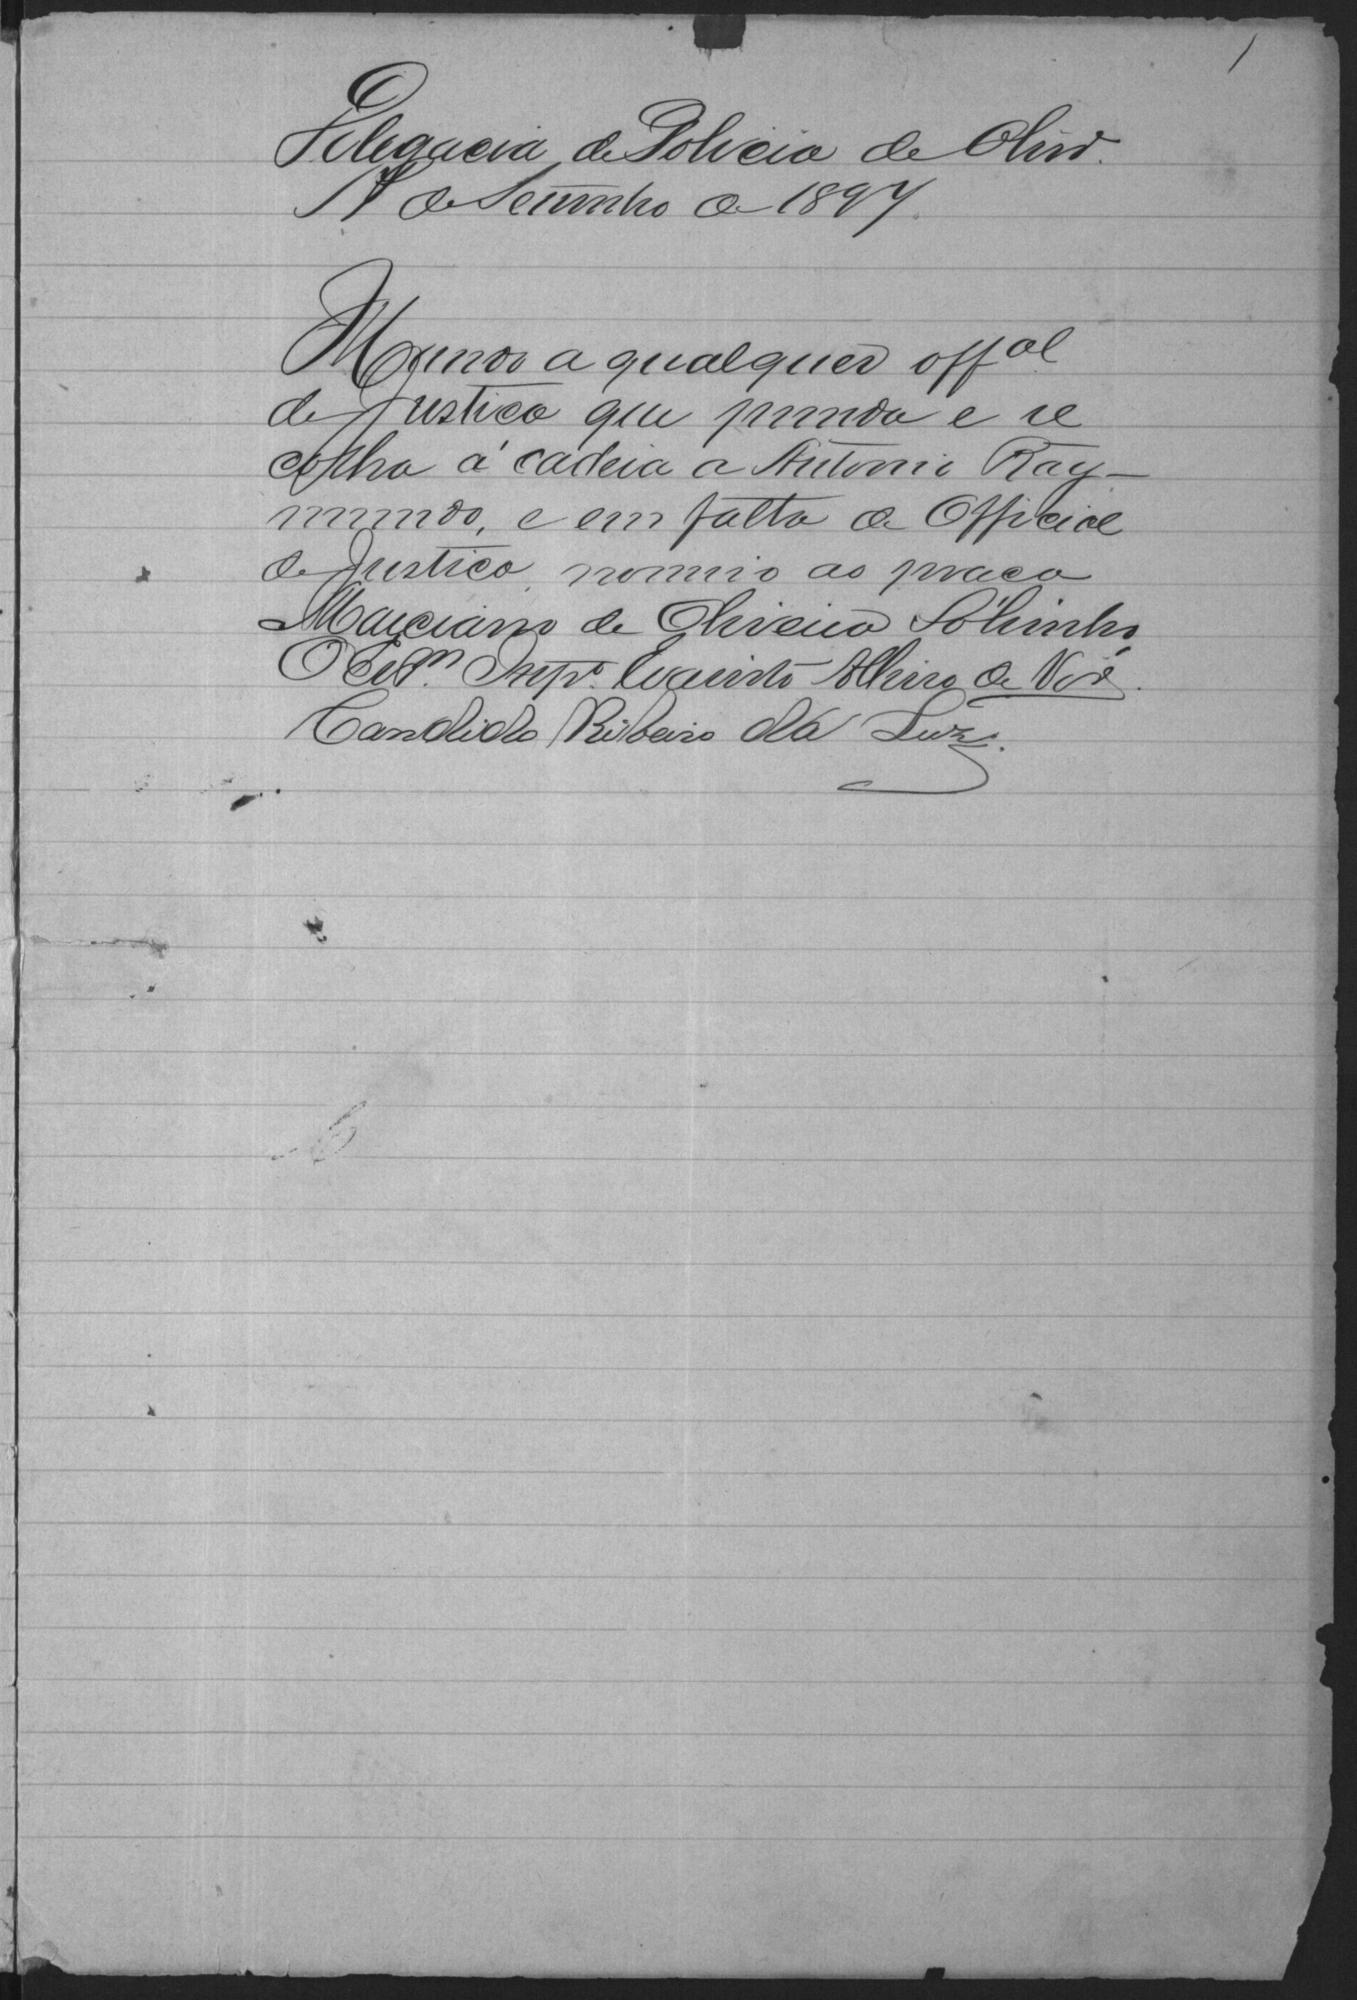 1
Delegacia de Policia de Oliv.
de Setembro de 1897.
Mando a qualquer offal
de Justiça que prenda e re
colha á cadeia a Antonio Ray-
mundo, e em falta de Official
de Justiça, nomeio ao praça
Marciano de Oliveira Sobrinho
O Escm. Evaristo de
Candido Ribeiro da Luz.